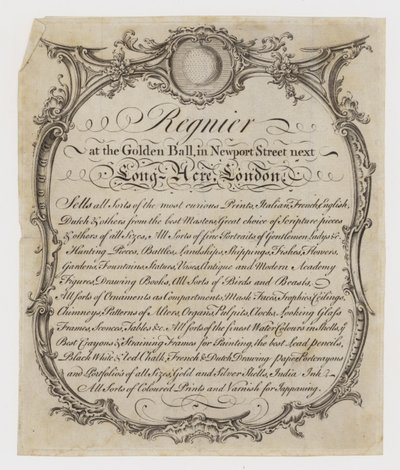 Regnier
at the Golden Ball, in Newport Street next
Long-Acre, London,
Sells all Sorts of the most curious Prints, Italian, French, English,
Dutch & others from the best Masters, Great choice of Scripture pieces
& others of all Sizes, All Sorts of fine Portraits of Gentlemen, Ladys &c
Hunting Pieces, Battles, Landskips, Shippings, Fishes, Flowers,
Gardens, Fountains, Statues, Vases, Antique and Modern Academy
Figures, Drawing Books, All Sorts of Birds and Beasts.
All Sorts of Ornaments as Compartments, Mask Faces, Trophies, Ceilings,
Chimneys, Patterns of Alters, Organs, Pulpits, Clocks, Looking Glass
Frames, Sconces, Tables &c. All Sorts of the finest Water Colours in Shells, ye
Best Crayons & Straining Frames for Painting, the best Lead pencils,
Black White & Red Chalk, French & Dutch Drawing paper Portcrayons
and Portfolio's of all Sizes, Gold and Silver Shells, India Ink &
All Sorts of Coloured Prints and Varnish for Jappaning.